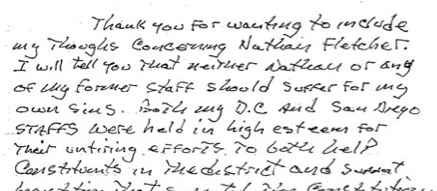 Thank you for wanting to include
my Thoughts Concerning Nathan Fletcher.
I will tell you That neither Nathan or any
of my former Staff should Suffer for my
own sins. Both my D.C and San Diego
STAFFS were held in high esteem for
Their untiring efforts To both help
Constituents in The district and
That